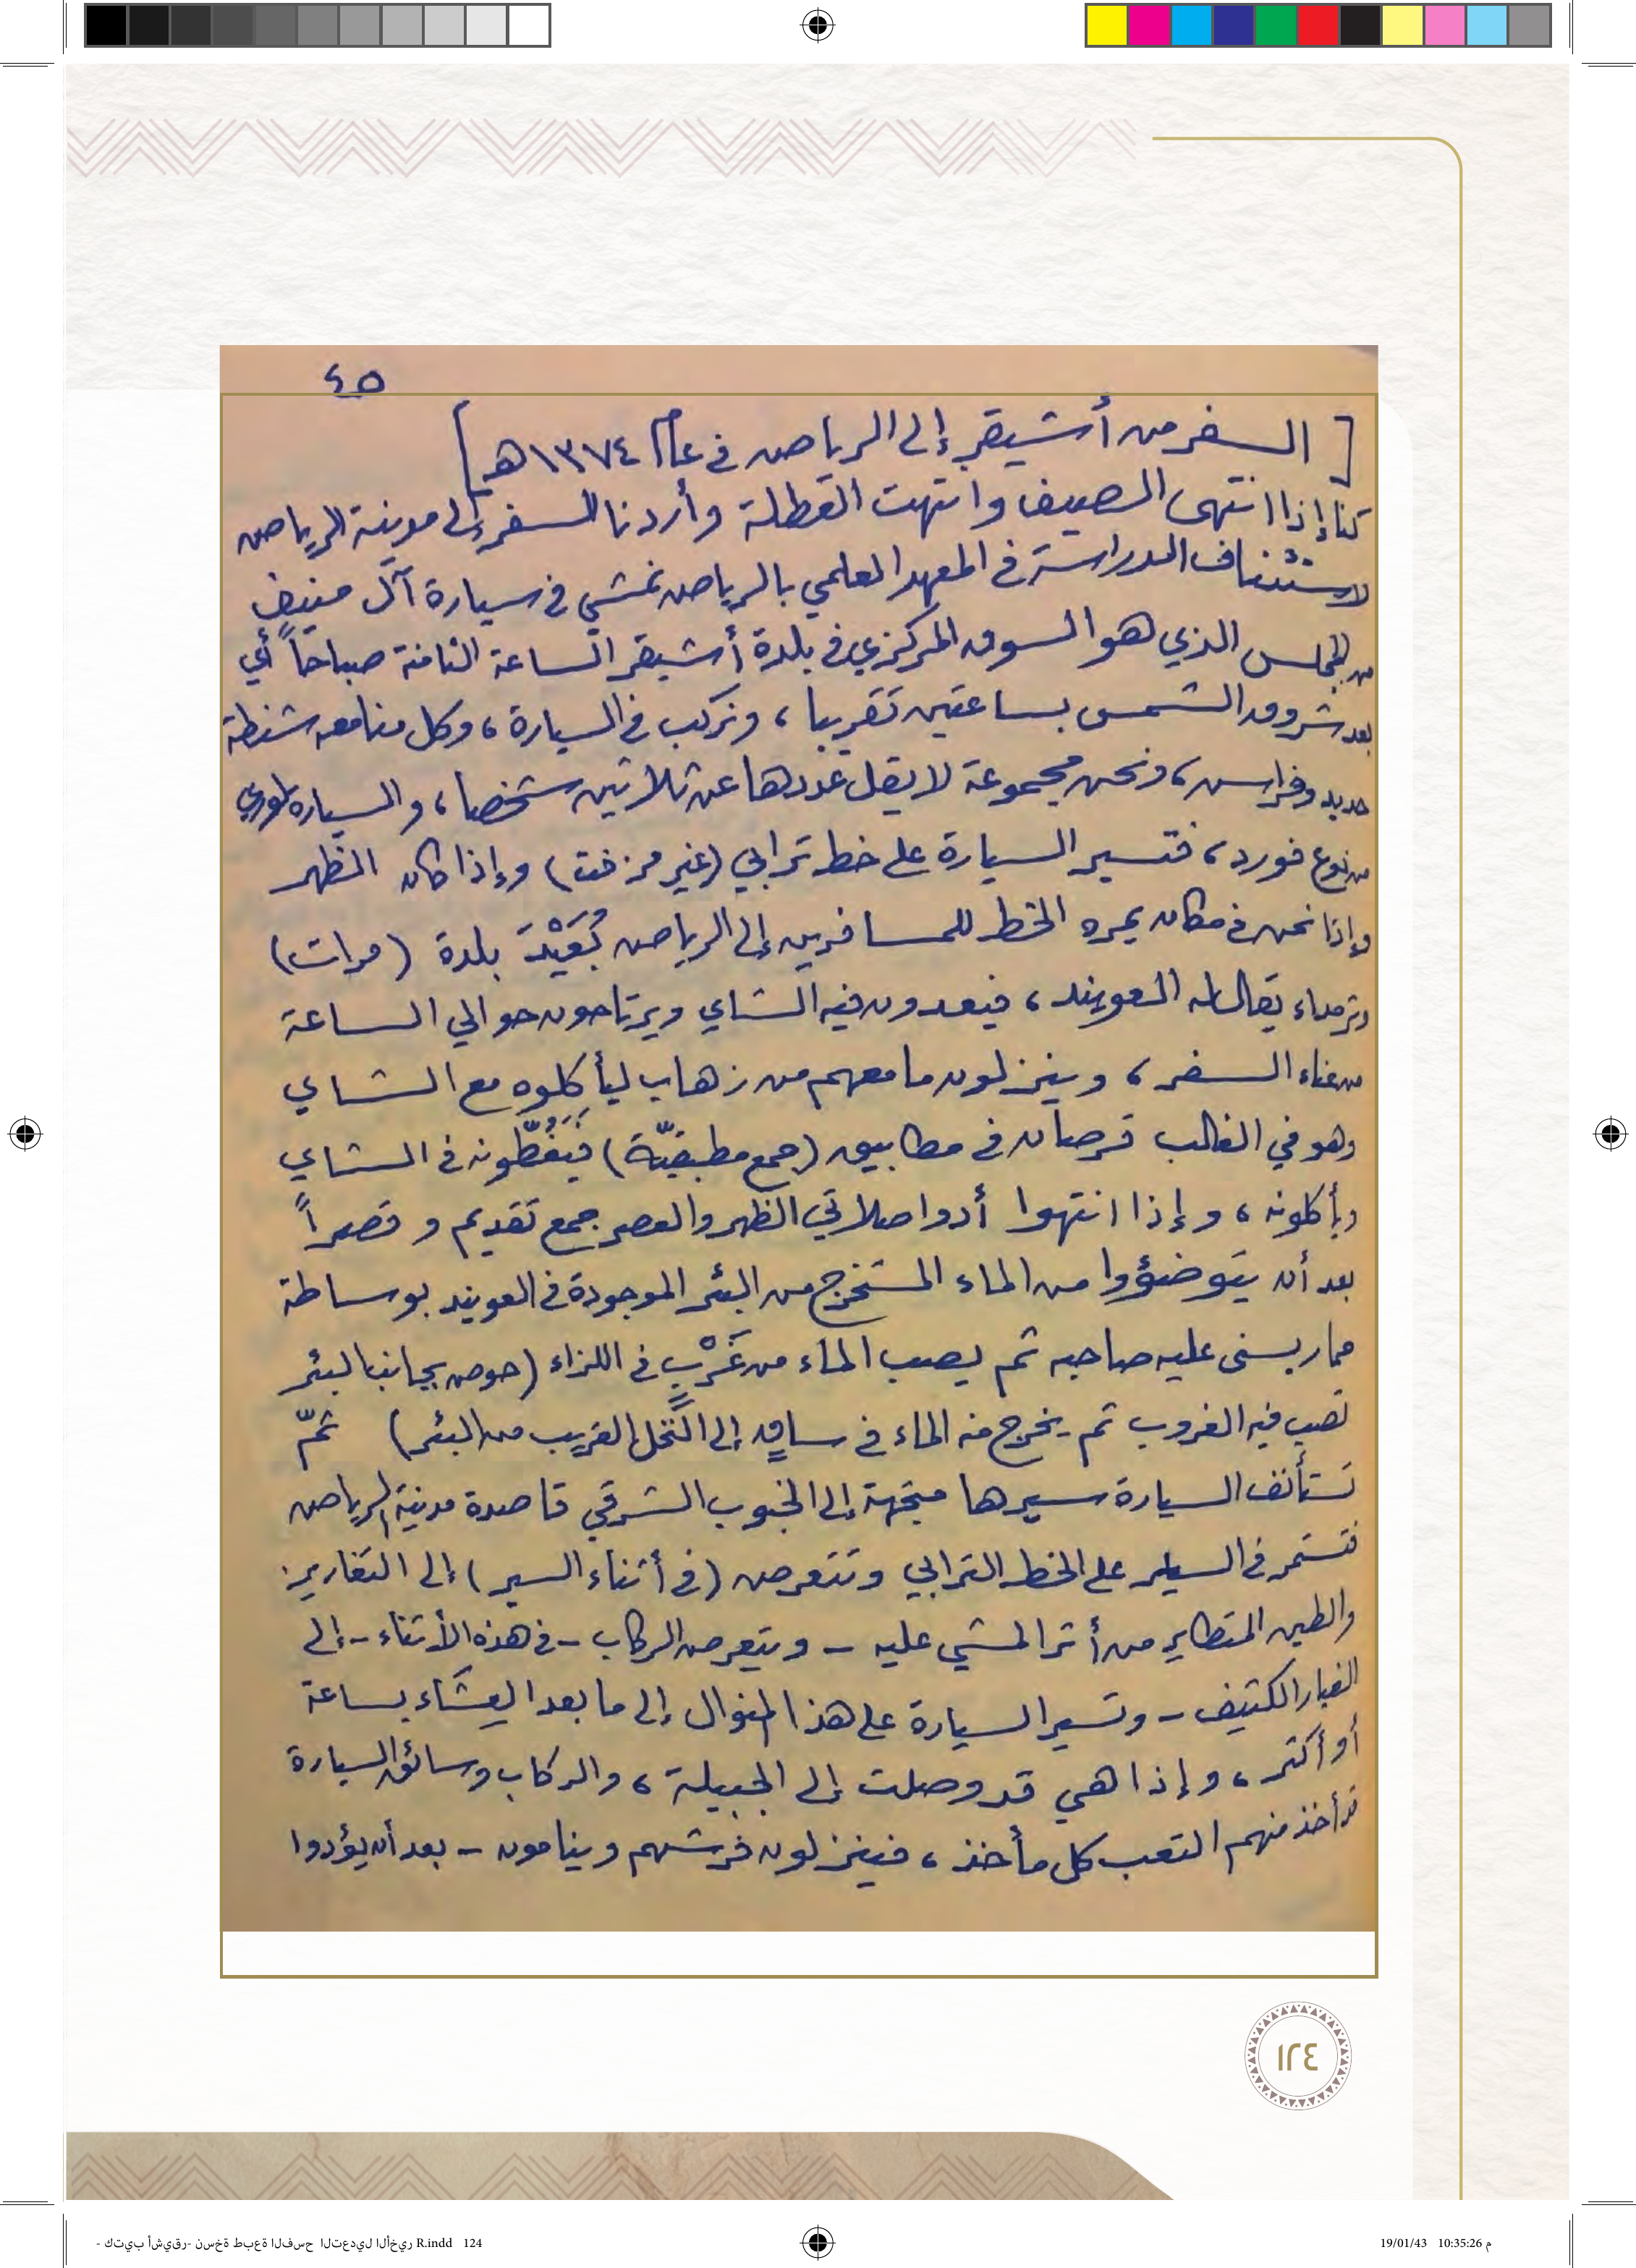 ٤٥
[ السفر من أشيقر إلى الرياض في عام ١٣٧٤هـ ]
كنا إذا انتهى الصيف وانتهت العطلة وأردنا السفر إلى مدينة الرياض
لاستئناف الدراسة في المعهد العلمي بالرياض نمشي في سيارة آل منيف
من المجلس الذي هو السوق المركزي في بلدة أشيقر الساعة الثامنة صباحاً أي
بعد شروق الشمس بساعتين تقريبا، ونركب في السيارة، وكل منا معه شنطة
حديد وفراش، ونحن مجموعة لا يقل عددها عن ثلاثين شخصا، والسيارة لوري
من نوع فورد، فتسير السيارة على خط ترابي (غير مزفت) وإذا كان الظهر
وإذا نحن في مكان يمره الخط للمسافرين إلى الرياض بُعَيْدَ بلدة (مرات)
وثرمداء يقال له العويند، فيعدون فيه الشاي ويرتاحون حوالي الساعة
من عناء السفر، وينزلون ما معهم من زهاب ليأكلوه مع الشاي
وهو في الغالب قرصان في مطابيق (جمع مطبقيّة) فَيَغُطُّونه في الشاي
ويأكلونه، وإذا انتهوا أدوا صلاتي الظهر والعصر جمع تقديم وقصراً
بعد أن يتوضؤوا من الماء المستخرج من البئر الموجودة في العويند بوساطة
حمار يسنى عليه صاحبه ثم يصب الماء من غَرْبٍ في اللزاء (حوض بجانب البئر
تصب فيه الغروب ثم يخرج منه الماء في ساقٍ إلى النَّخل القريب من البئر) ثمّ
تستأنف السيارة سيرها متجهة إلى الجنوب الشرقي قاصدة مدينة الرياض
فتستمر في السير على الخط الترابي وتتعرض (في أثناء السير) إلى التغاريز
والطين المتطاير من أثر المشي عليه - ويتعرض الركاب - في هذه الأثناء - إلى
الغبار الكثيف - وتسير السيارة على هذا المنوال إلى ما بعد العِشَاء بساعة
أو أكثر، وإذا هي قد وصلت إلى الجبيلة، والركاب وسائق السيارة
قد أخذ منهم التعب كل مأخذ، فينزلون فرشهم وينامون - بعد أن يؤدوا
١٢٤
كتيب أشيقر- نسخة طبعة الفسح التعديل الأخير R.indd 124
19/01/43 10:35:26 م